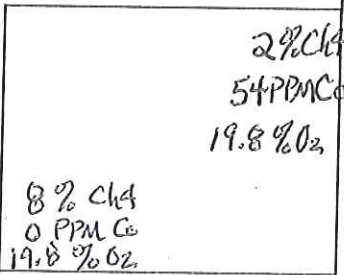 2% Ch4
54 PPM Co
19.8 % O2
8 % Ch4
0 PPM Co
19.8 % O2